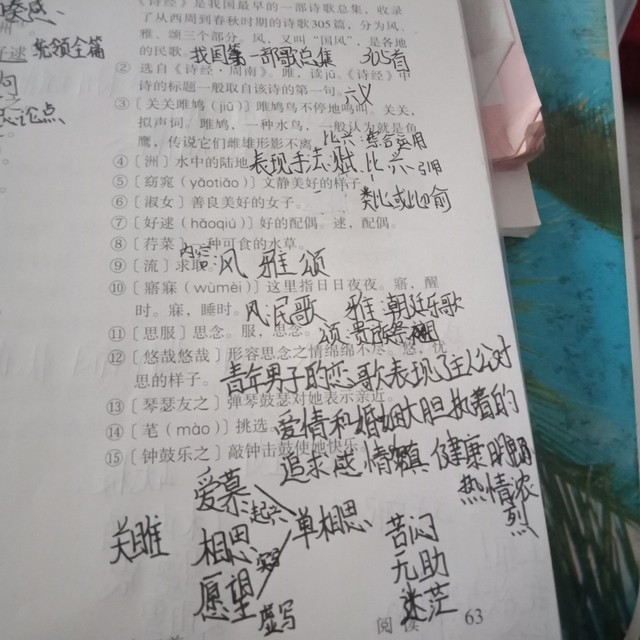 《诗经》是我国最早的一部诗歌总集，收录
了从西周到春秋时期的诗歌305篇，分为风、
雅、颂三个部分。风，又叫“国风”，是各地
的民歌。我国第一部歌总集 305首
② 选自《诗经·周南》。雎，读jū。《诗经》中
诗的标题一般取自该诗的第一句。六义
③ ［关关雎鸠（jiū）］雎鸠鸟不停地鸣叫。关关，
拟声词。雎鸠，一种水鸟，一般认为就是鱼
鹰，传说它们雌雄形影不离。比兴：综合运用
④［洲］水中的陆地。表现手法：赋 比 兴 引用
⑤［窈窕（yǎotiǎo）］文静美好的样子。
⑥［淑女］善良美好的女子。类比或比喻
⑦［好逑（hǎoqiú）］好的配偶。逑，配偶。
⑧［荇菜］一种可食的水草。
⑨［流］求取。内容：风 雅 颂
⑩［寤寐（wùmèi）］这里指日日夜夜。寤，醒
时。寐，睡时。风 民歌 雅 朝廷乐歌
⑪［思服］思念。服，思念。颂 贵族祭祖
⑫［悠哉悠哉］形容思念之情绵绵不尽。悠，忧
思的样子。青年男子的恋歌表现了主人公对
⑬［琴瑟友之］弹琴鼓瑟对她表示亲近。
⑭［芼（mào）］挑选。爱情和婚姻大胆执着的
⑮［钟鼓乐之］敲钟击鼓使她快乐。追求感情 真 健康明
热情浓
烈
凑感
好逑 统领全篇
句
论点
爱慕 起兴
关雎 相思 单相思 苦闷
无助
愿望 虚写 迷茫
阅读 63